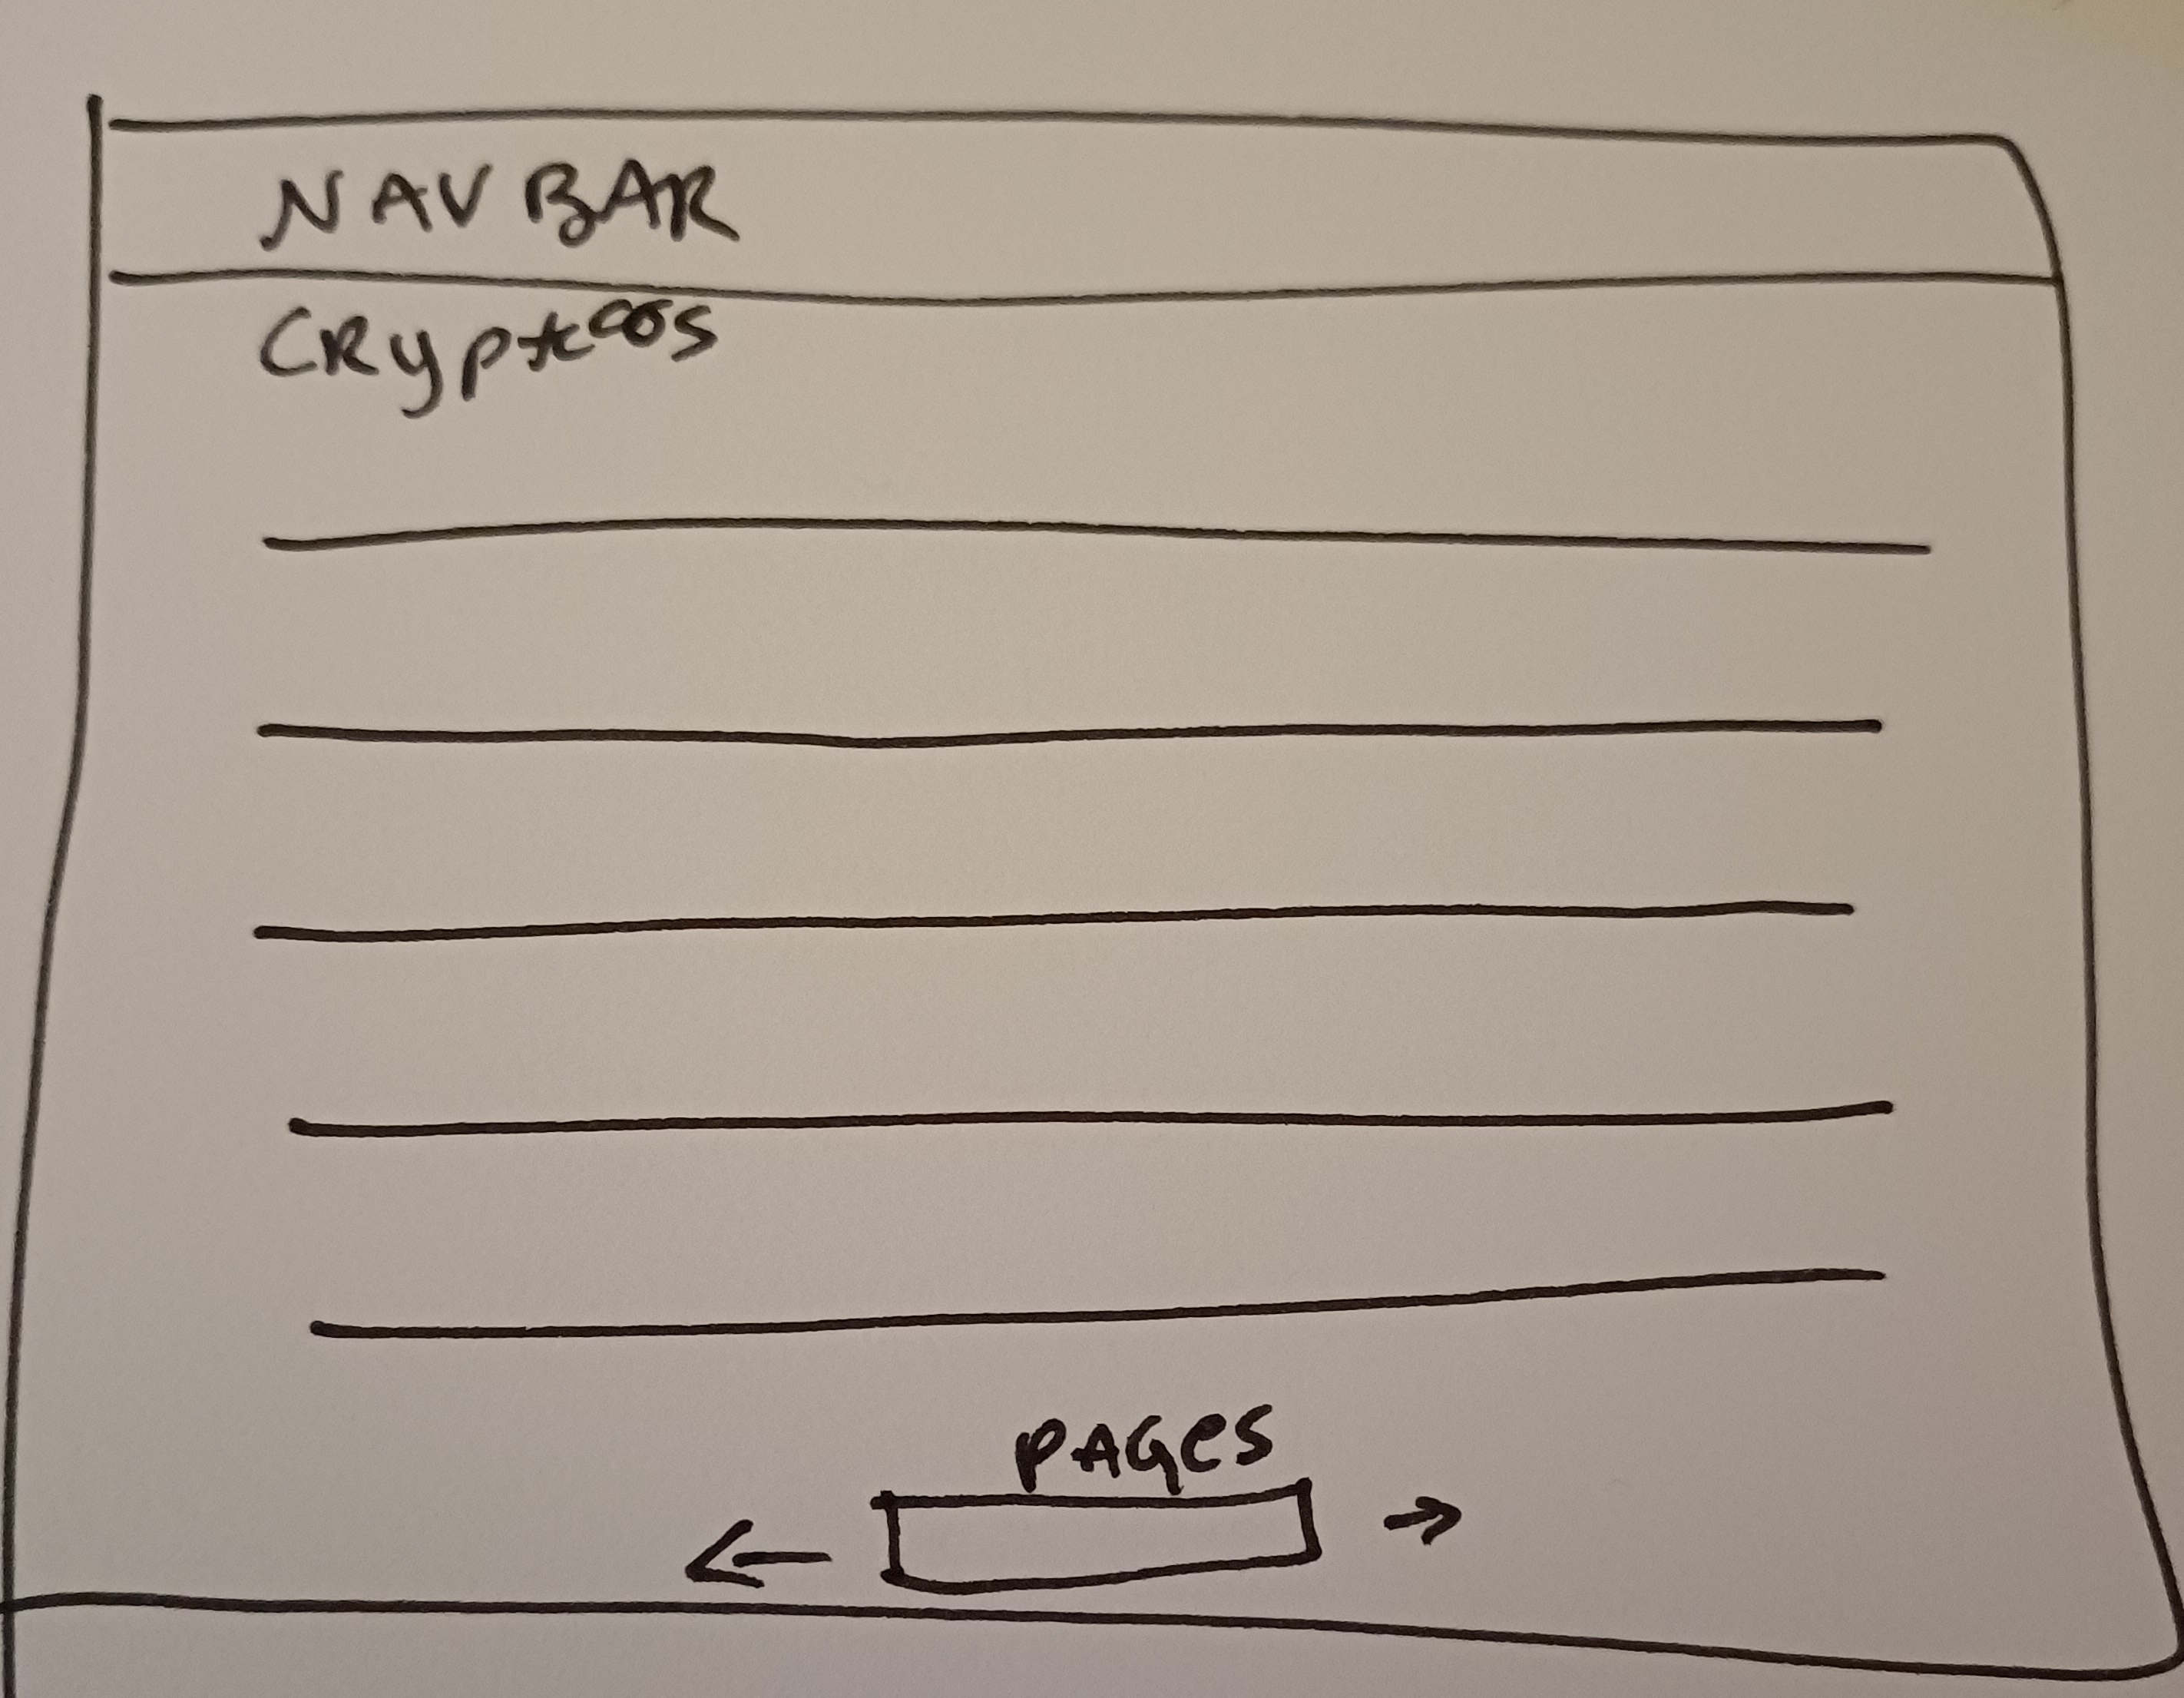 NAV BAR
CRyptos
PAGES